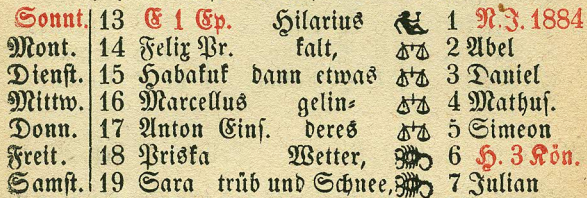 Sonnt. 13 E 1 Ep. Hilarius 1 N.J. 1884
Mont. 14 Felix Pr. kalt, 2 Abel
Dienst. 15 Habakuk dann etwas 3 Daniel
Mittw. 16 Marcellus gelin= 4 Mathus.
Donn. 17 Anton Eins. deres 5 Simeon
Freit. 18 Priska Wetter, 6 H. 3 Kön.
Samst. 19 Sara trüb und Schnee, 7 Julian